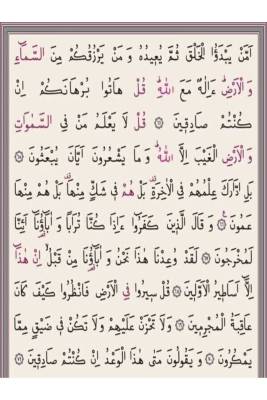 اَمَّنْ يَبْدَؤُا الْخَلْقَ ثُمَّ يُع۪يدُهُ وَ مَنْ يَرْزُقُكُمْ مِنَ السَّمَٓاءِ
وَ الْاَرْضِ ءَاِلٰهٌ مَعَ اللّٰهِ قُلْ هَاتُوا بُرْهَانَكُمْ اِنْ
كُنْتُمْ صَادِق۪ينَ ۞ قُلْ لَا يَعْلَمُ مَنْ فِى السَّمٰوَاتِ
وَ الْاَرْضِ الْغَيْبَ اِلَّا اللّٰهُ وَ مَا يَشْعُرُونَ اَيَّانَ يُبْعَثُونَ ۞
بَلِ ادَّارَكَ عِلْمُهُمْ فِى الْاٰخِرَةِ بَلْ هُمْ ف۪ى شَكٍّ مِنْهَا بَلْ هُمْ مِنْهَا
عَمُونَ ۞ وَ قَالَ الَّذ۪ينَ كَفَرُٓوا ءَاِذَا كُنَّا تُرَابًا وَ اٰبَٓاؤُنَٓا اَئِنَّا
لَمُخْرَجُونَ ۞ لَقَدْ وُعِدْنَا هٰذَا نَحْنُ وَ اٰبَٓاؤُنَا مِنْ قَبْلُ اِنْ هٰذَٓا
اِلَّٓا اَسَاط۪يرُ الْاَوَّل۪ينَ ۞ قُلْ س۪يرُوا فِى الْاَرْضِ فَانْظُرُوا كَيْفَ كَانَ
عَاقِبَةُ الْمُجْرِم۪ينَ ۞ وَ لَا تَحْزَنْ عَلَيْهِمْ وَ لَا تَكُنْ ف۪ى ضَيْقٍ مِمَّا
يَمْكُرُونَ ۞ وَ يَقُولُونَ مَتٰى هٰذَا الْوَعْدُ اِنْ كُنْتُمْ صَادِق۪ينَ ۞